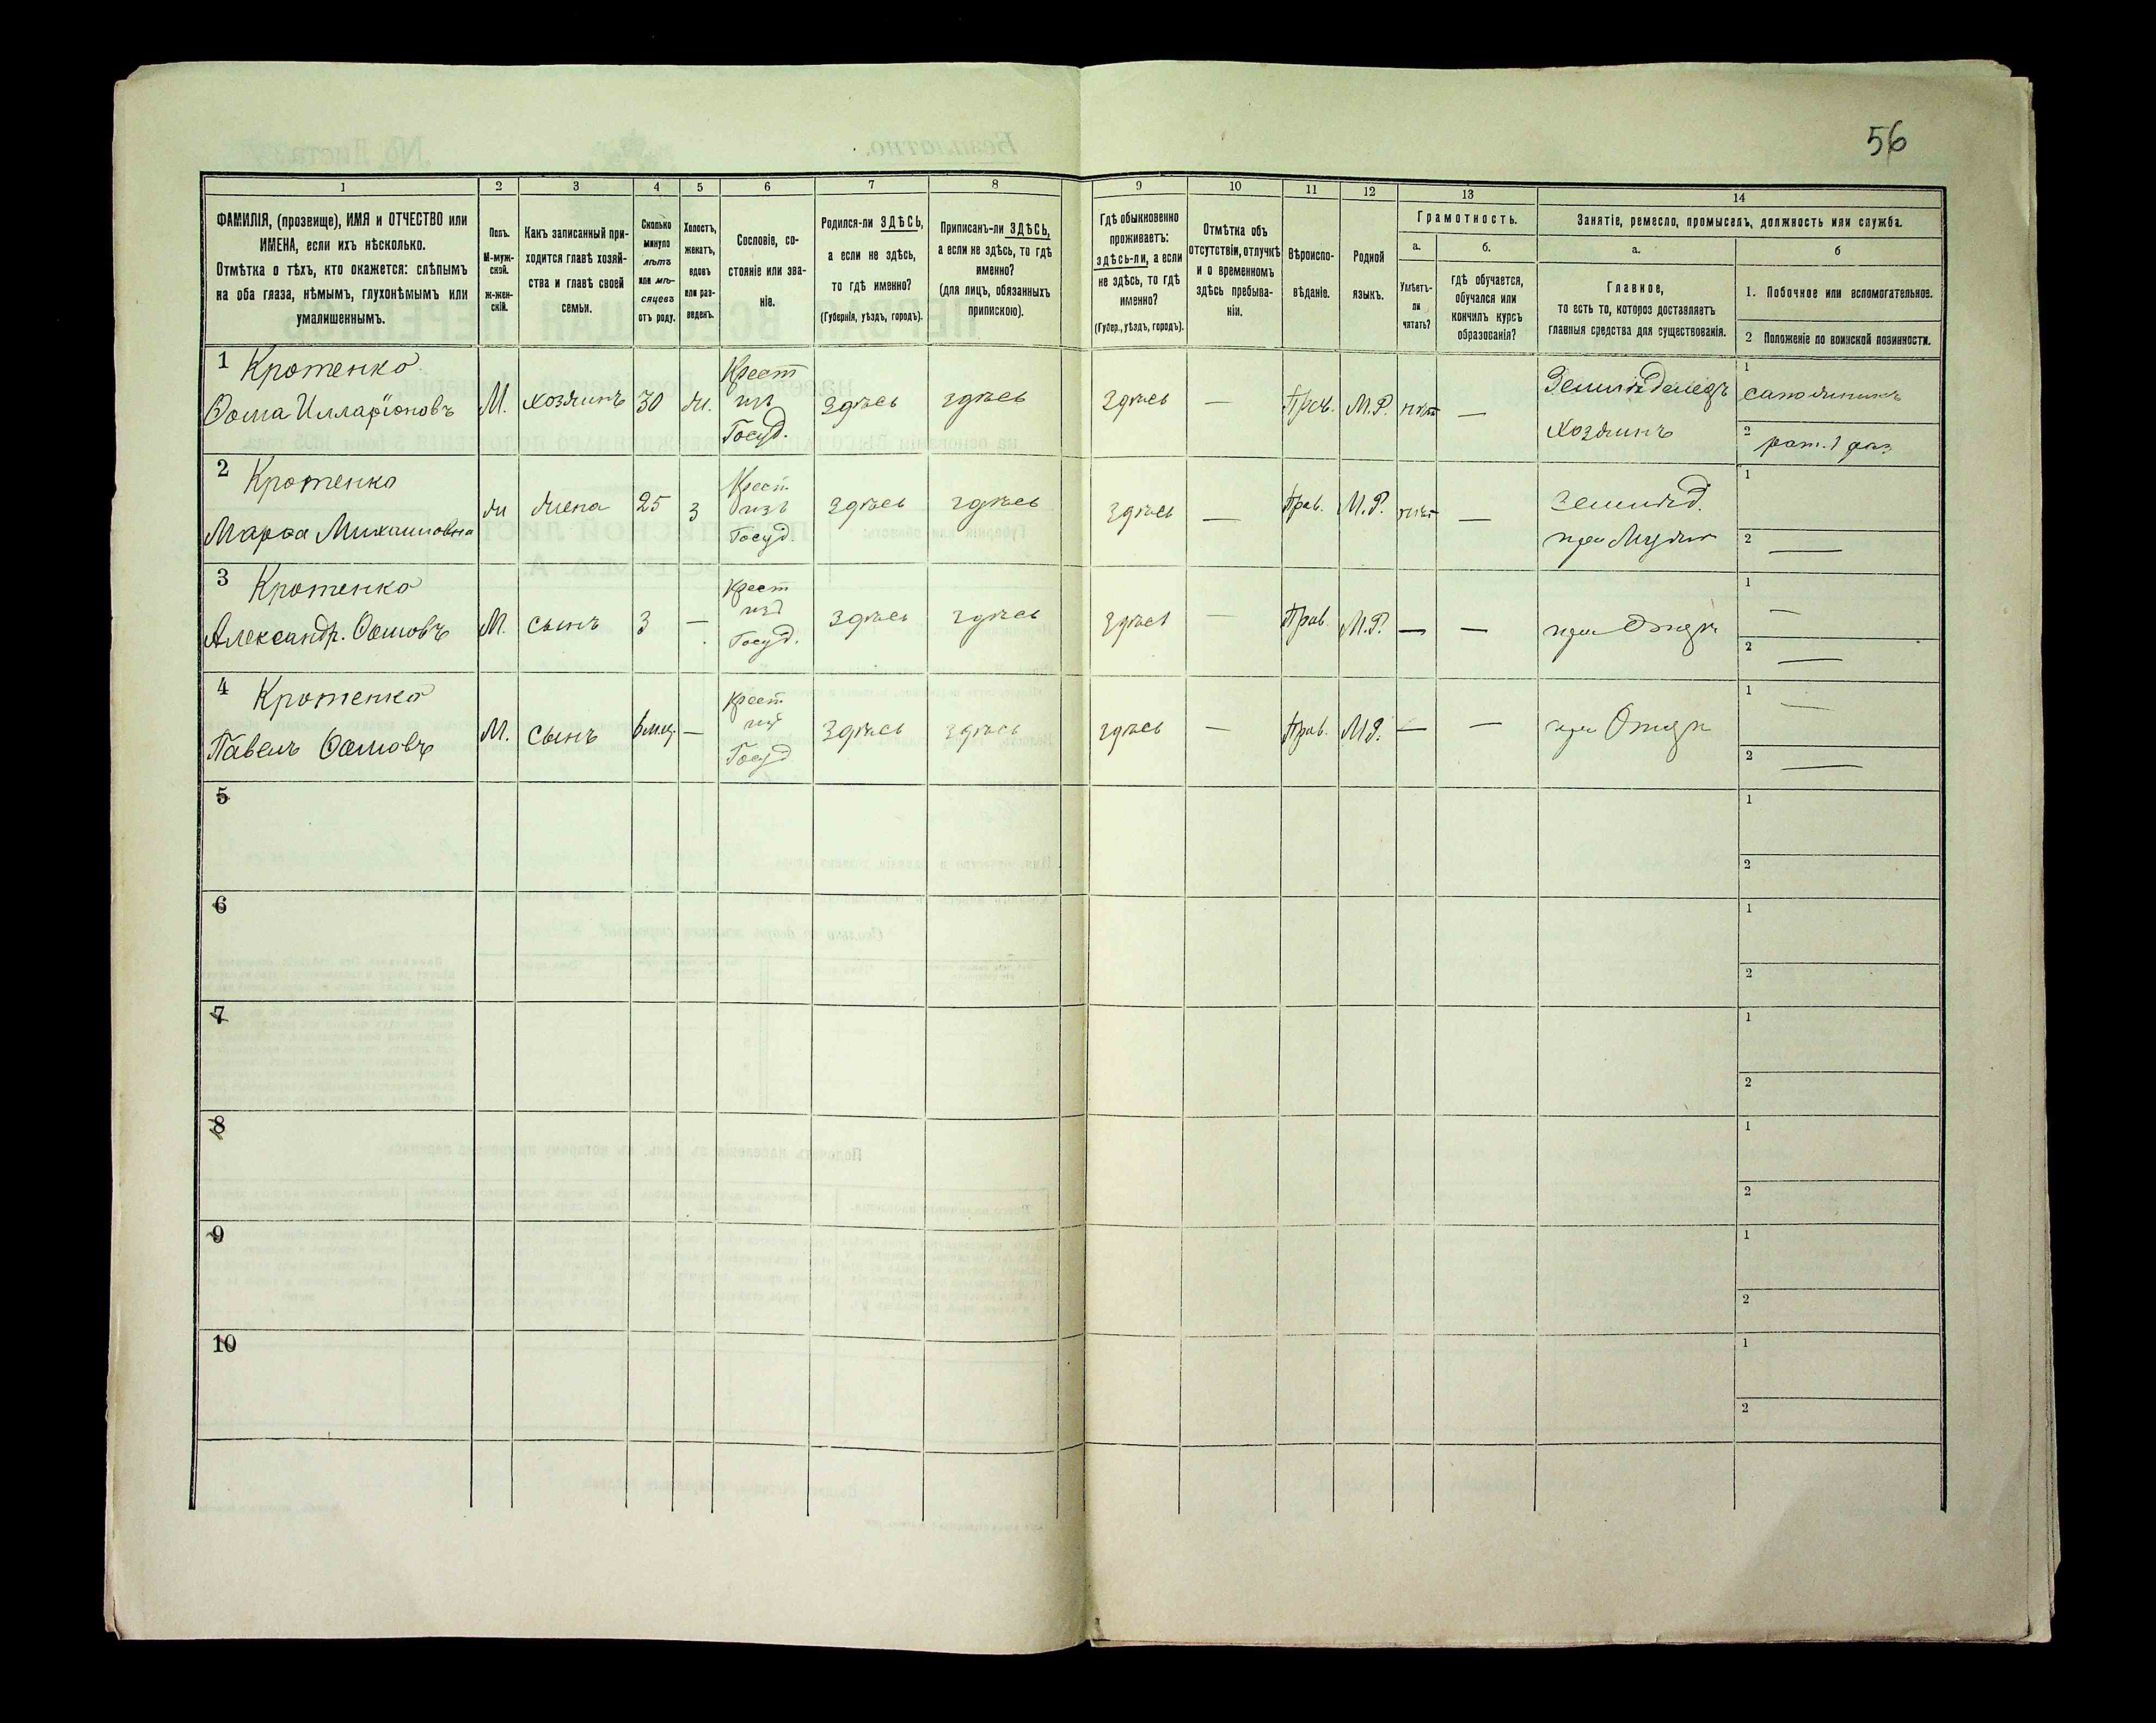 56
1 2 3 4 5 6 7 8 9 10 11 12 13 14
ФАМИЛІЯ, (прозвище), ИМЯ и ОТЧЕСТВО или
ИМЕНА, если ихъ нѣсколько.
Отмѣтка о тѣхъ, кто окажется: слѣпымъ
на оба глаза, нѣмымъ, глухонѣмымъ или
умалишеннымъ.
Полъ.
М-муж-
ской.
ж-жен-
скій.
Какъ записанный при-
ходится главѣ хозяй-
ства и главѣ своей
семьи.
Сколько
минуло
лѣтъ
или мѣ-
сяцевъ
отъ роду.
Холостъ,
женатъ,
вдовъ
или раз-
веденъ.
Сословіе, со-
стояніе или зва-
ніе.
Родился-ли ЗДѢСЬ,
а если не здѣсь,
то гдѣ именно?
(Губернія, уѣздъ, городъ).
Приписанъ-ли ЗДѢСЬ,
а если не здѣсь, то гдѣ
именно?
(для лицъ, обязанныхъ
припискою).
Гдѣ обыкновенно
проживаетъ:
здѣсь-ли, а если
не здѣсь, то гдѣ
именно?
(Губер., уѣздъ, городъ).
Отмѣтка объ
отсутствіи, отлучкѣ
и о временномъ
здѣсь пребыва-
ніи.
Вѣроиспо-
вѣданіе.
Родной
языкъ.
Грамотность.
а.
Умѣетъ-
ли
читать?
б.
гдѣ обучается,
обучался или
кончилъ курсъ
образованія?
Занятіе, ремесло, промыселъ, должность или служба.
а.
Главное,
то есть то, которое доставляетъ
главныя средства для существованія.
б
1. Побочное или вспомогательное.
2 Положеніе по воинской повинности.
1 Кротенко
Ѳома Илларіоновъ
М. хозяинъ 30 ж.
Крест
изъ
Госуд.
здѣсь здѣсь здѣсь — Прав. М.Р. нѣт —
Земледѣлецъ
хозяинъ
1 сапожникъ
2 рат. 1 раз
2 Кротенко
Марѳа Михаиловна
ж жена 25 з
Крест.
изъ
Госуд.
здѣсь здѣсь здѣсь — Прав. М.Р. нѣт —
Землед.
при Мужѣ
1
2 —
3 Кротенко
Александр. Ѳомовъ
М. сынъ 3 —
Крест
изъ
Госуд.
здѣсь здѣсь здѣсь — Прав. М.Р. — —
при Отцѣ
1 —
2 —
4 Кротенко
Павелъ Ѳомовъ
М. сынъ 6 мѣц. —
Крест
изъ
Госуд
здѣсь здѣсь здѣсь — Прав. М.Р. — —
при Отцѣ
1 —
2 —
5
1
2
6
1
2
7
1
2
8
1
2
9
1
2
10
1
2